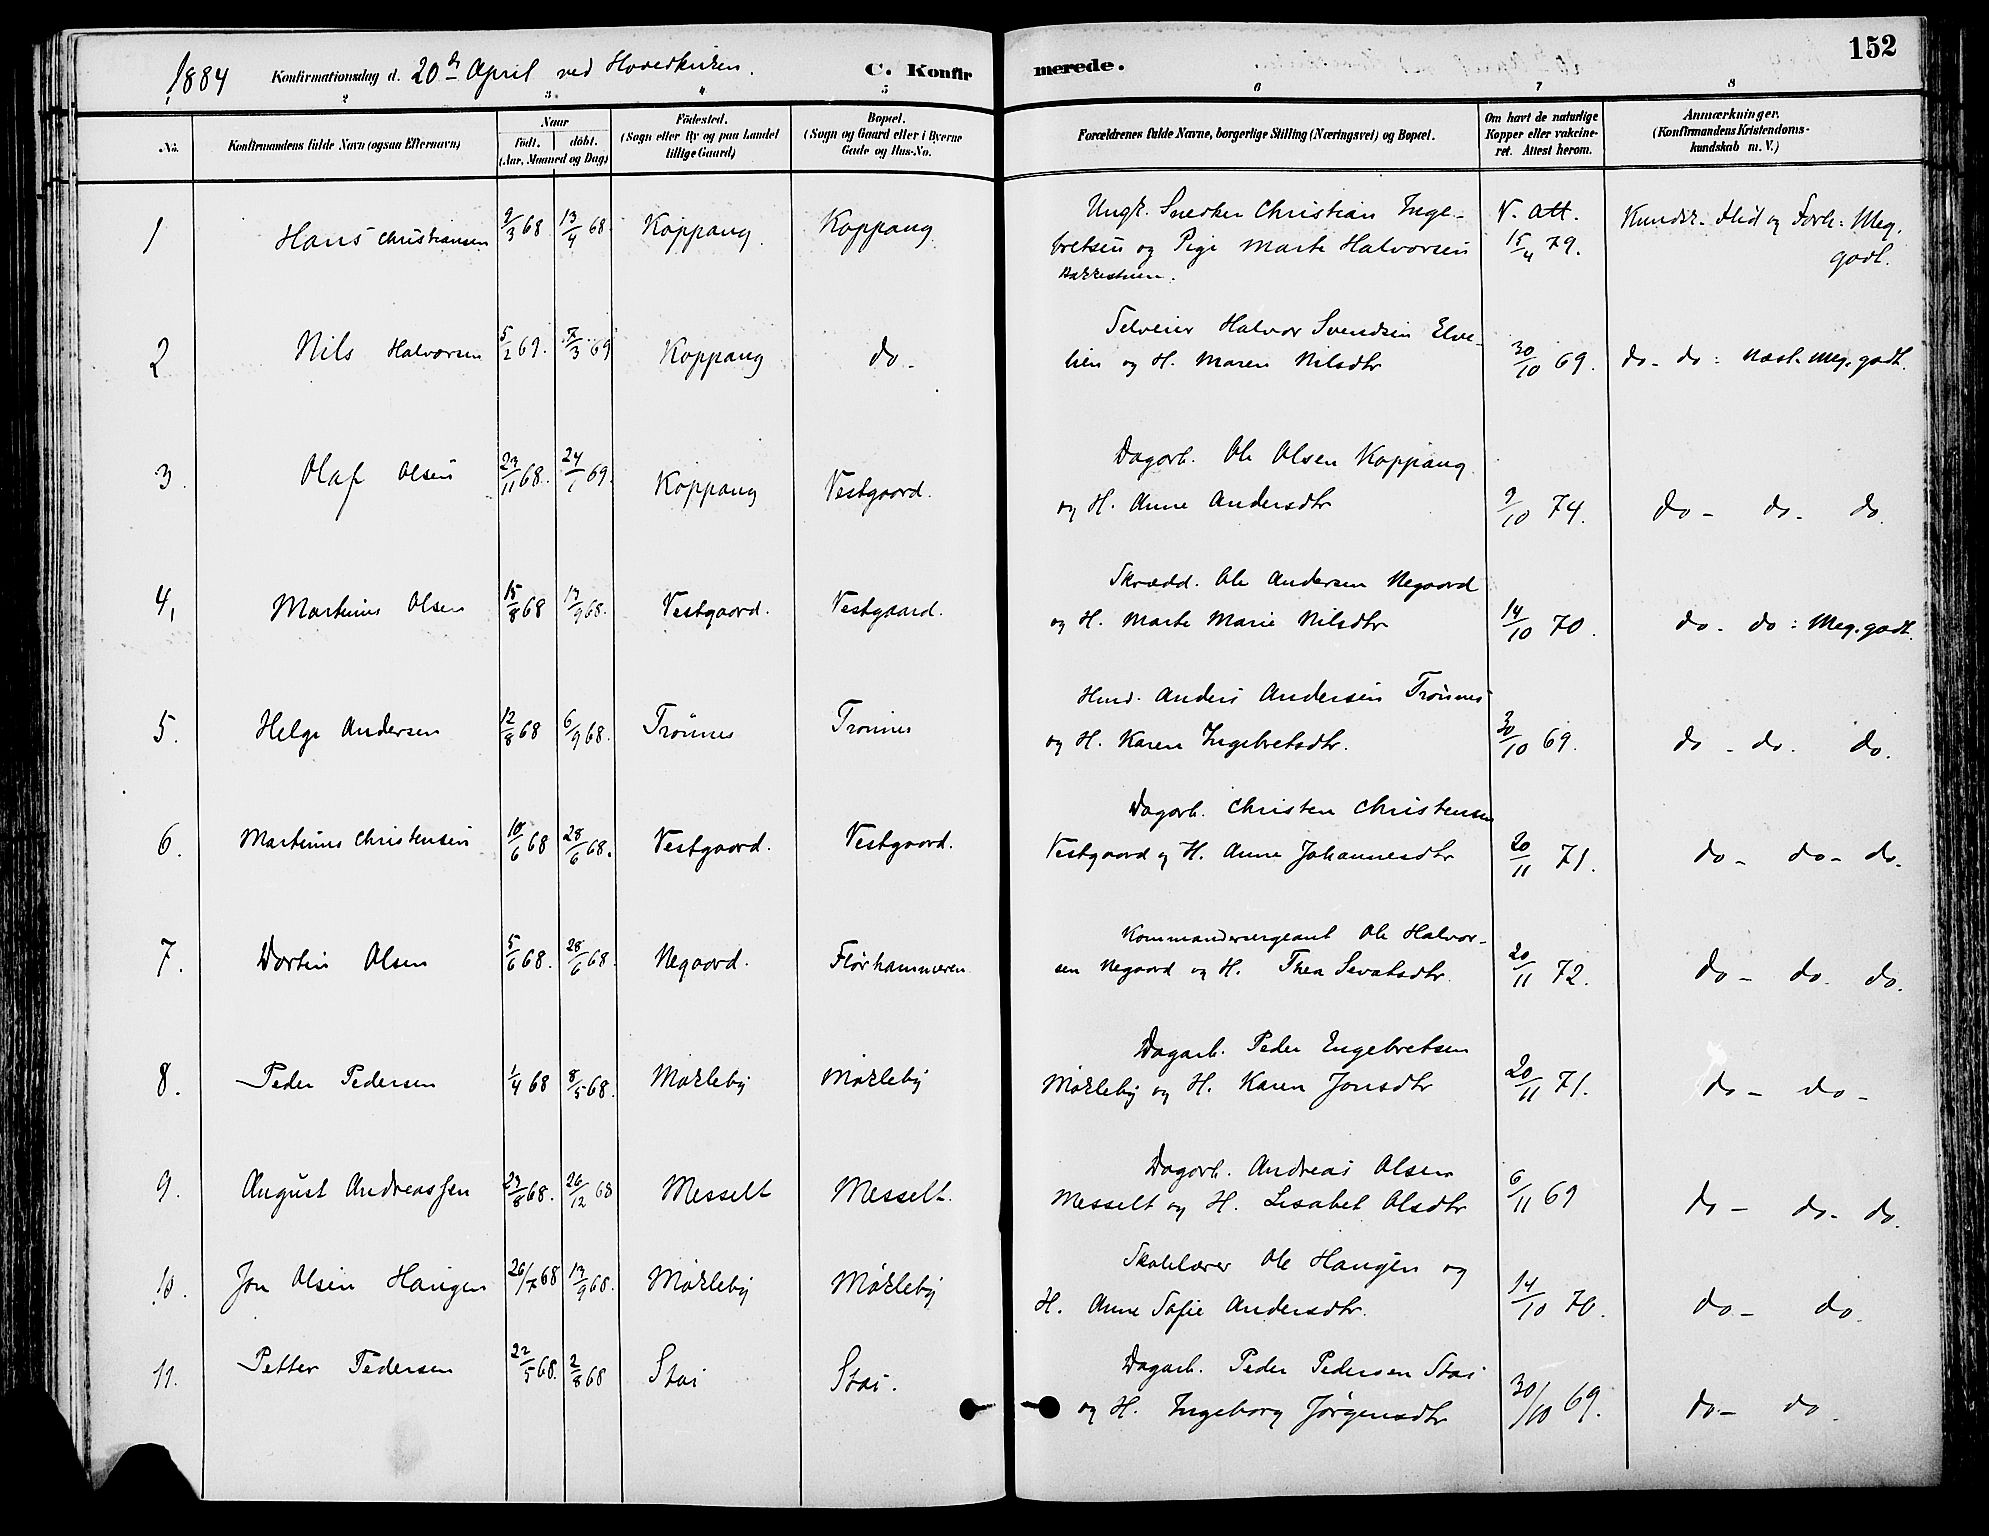 1884 Konfirmationsdag d. 20de April ved Hovedkirken. C. Konfirmerede. 152
2 3. 4 5 6 7 8
No. Konfirmandens fulde Navn (ogsaa Efternavn) Naar født. døbt. (Aar, Maaned og Dag) Födested. (Sogn eller By og paa Landet tillige Gaard) Bopæl. (Sogn og Gaard eller i Byerne Gade og Hus-No. Forældrenes fulde Navne, borgerlige Stilling (Næringsvei) og Bopæl. Om havt de naturlige Kopper eller vakcineret. Attest herom. Anmærkninger. (Konfirmandens Kristendomskundskab m. V.)
1 Hans Christiansen 9/3 68 13/4 68 Koppang. Koppang Ungk. Snedker Christian Inge-
bretsen og Pige Marte Halvorsen
Bakkestuen. V. Att. 15/4 79. Kundsk. Flid og Forh: Meg. godt.
2 Nils Halvorsen 5/2 69. 7/3 69 Koppang do- Selveier Halvor Svendsen Elve-
lien og H. Maren Nilsdtr 30/10 69. do- do: Næst. meg. godt.
3. Olaf Olsen 23/11 68. 24/1 69. Koppang Vestgaard. Dagarb. Ole Olsen Koppang
og H. Anne Andersdtr 9/10 74. do- do- do.
4, Martinus Olsen 15/8 68 13/9 68. Vestgaard. Vestgaard. Skrædd. Ole Andersen Negaard
og H. Marte Marie Nilsdtr 14/10 70. do- do: Meg. godt.
5. Helge Andersen 12/8 68 6/9 68. Trønnes Trønnes Husm. Anders Andersen Trønnes
og H. Karen Ingebretsdtr. 30/10 69. do- do. do.
6. Martinus Christensen 10/6 68 28/6 68. Vestgaard. Vestgaard. Dagarb. Christen Christensen
Vestgaard og H. Anne Johannesdtr 20/11 71. do- do- do.
7. Dortin Olsen 5/6 68. 28/6 68. Negaard. Flørhammeren Kommandersergeant Ole Halvor-
sen Negaard og H. Thea Sivatsdtr. 20/11 72. do- do. do.
8. Peder Pedersen 1/4 68 8/5 68. Mørkeby Mørkeby Dagarb. Peder Engebretsen
Mørkeby og H. Karen Jonsdtr 20/11 71. do- do-
9. August Andreassen 23/8 68. 26/12 68 Messelt Messelt. Dagarb. Andreas Olsen
Messelt og H. Lisabet Olsdtr 6/11 69 do- do- do.
10. Jon Olsen Haugen 26/7 68 13/9 68. Mørkeby Mørkeby Skolelærer Ole Haugen og
H. Anne Sofie Andersdtr. 14/10 70. do- do.
11. Petter Pedersen 22/5 68. 2/8 68 Stai Stai. Dagarb. Peder Pedersen Stai
og H. Ingeborg Jørgensdtr 30/10 69. do- do.